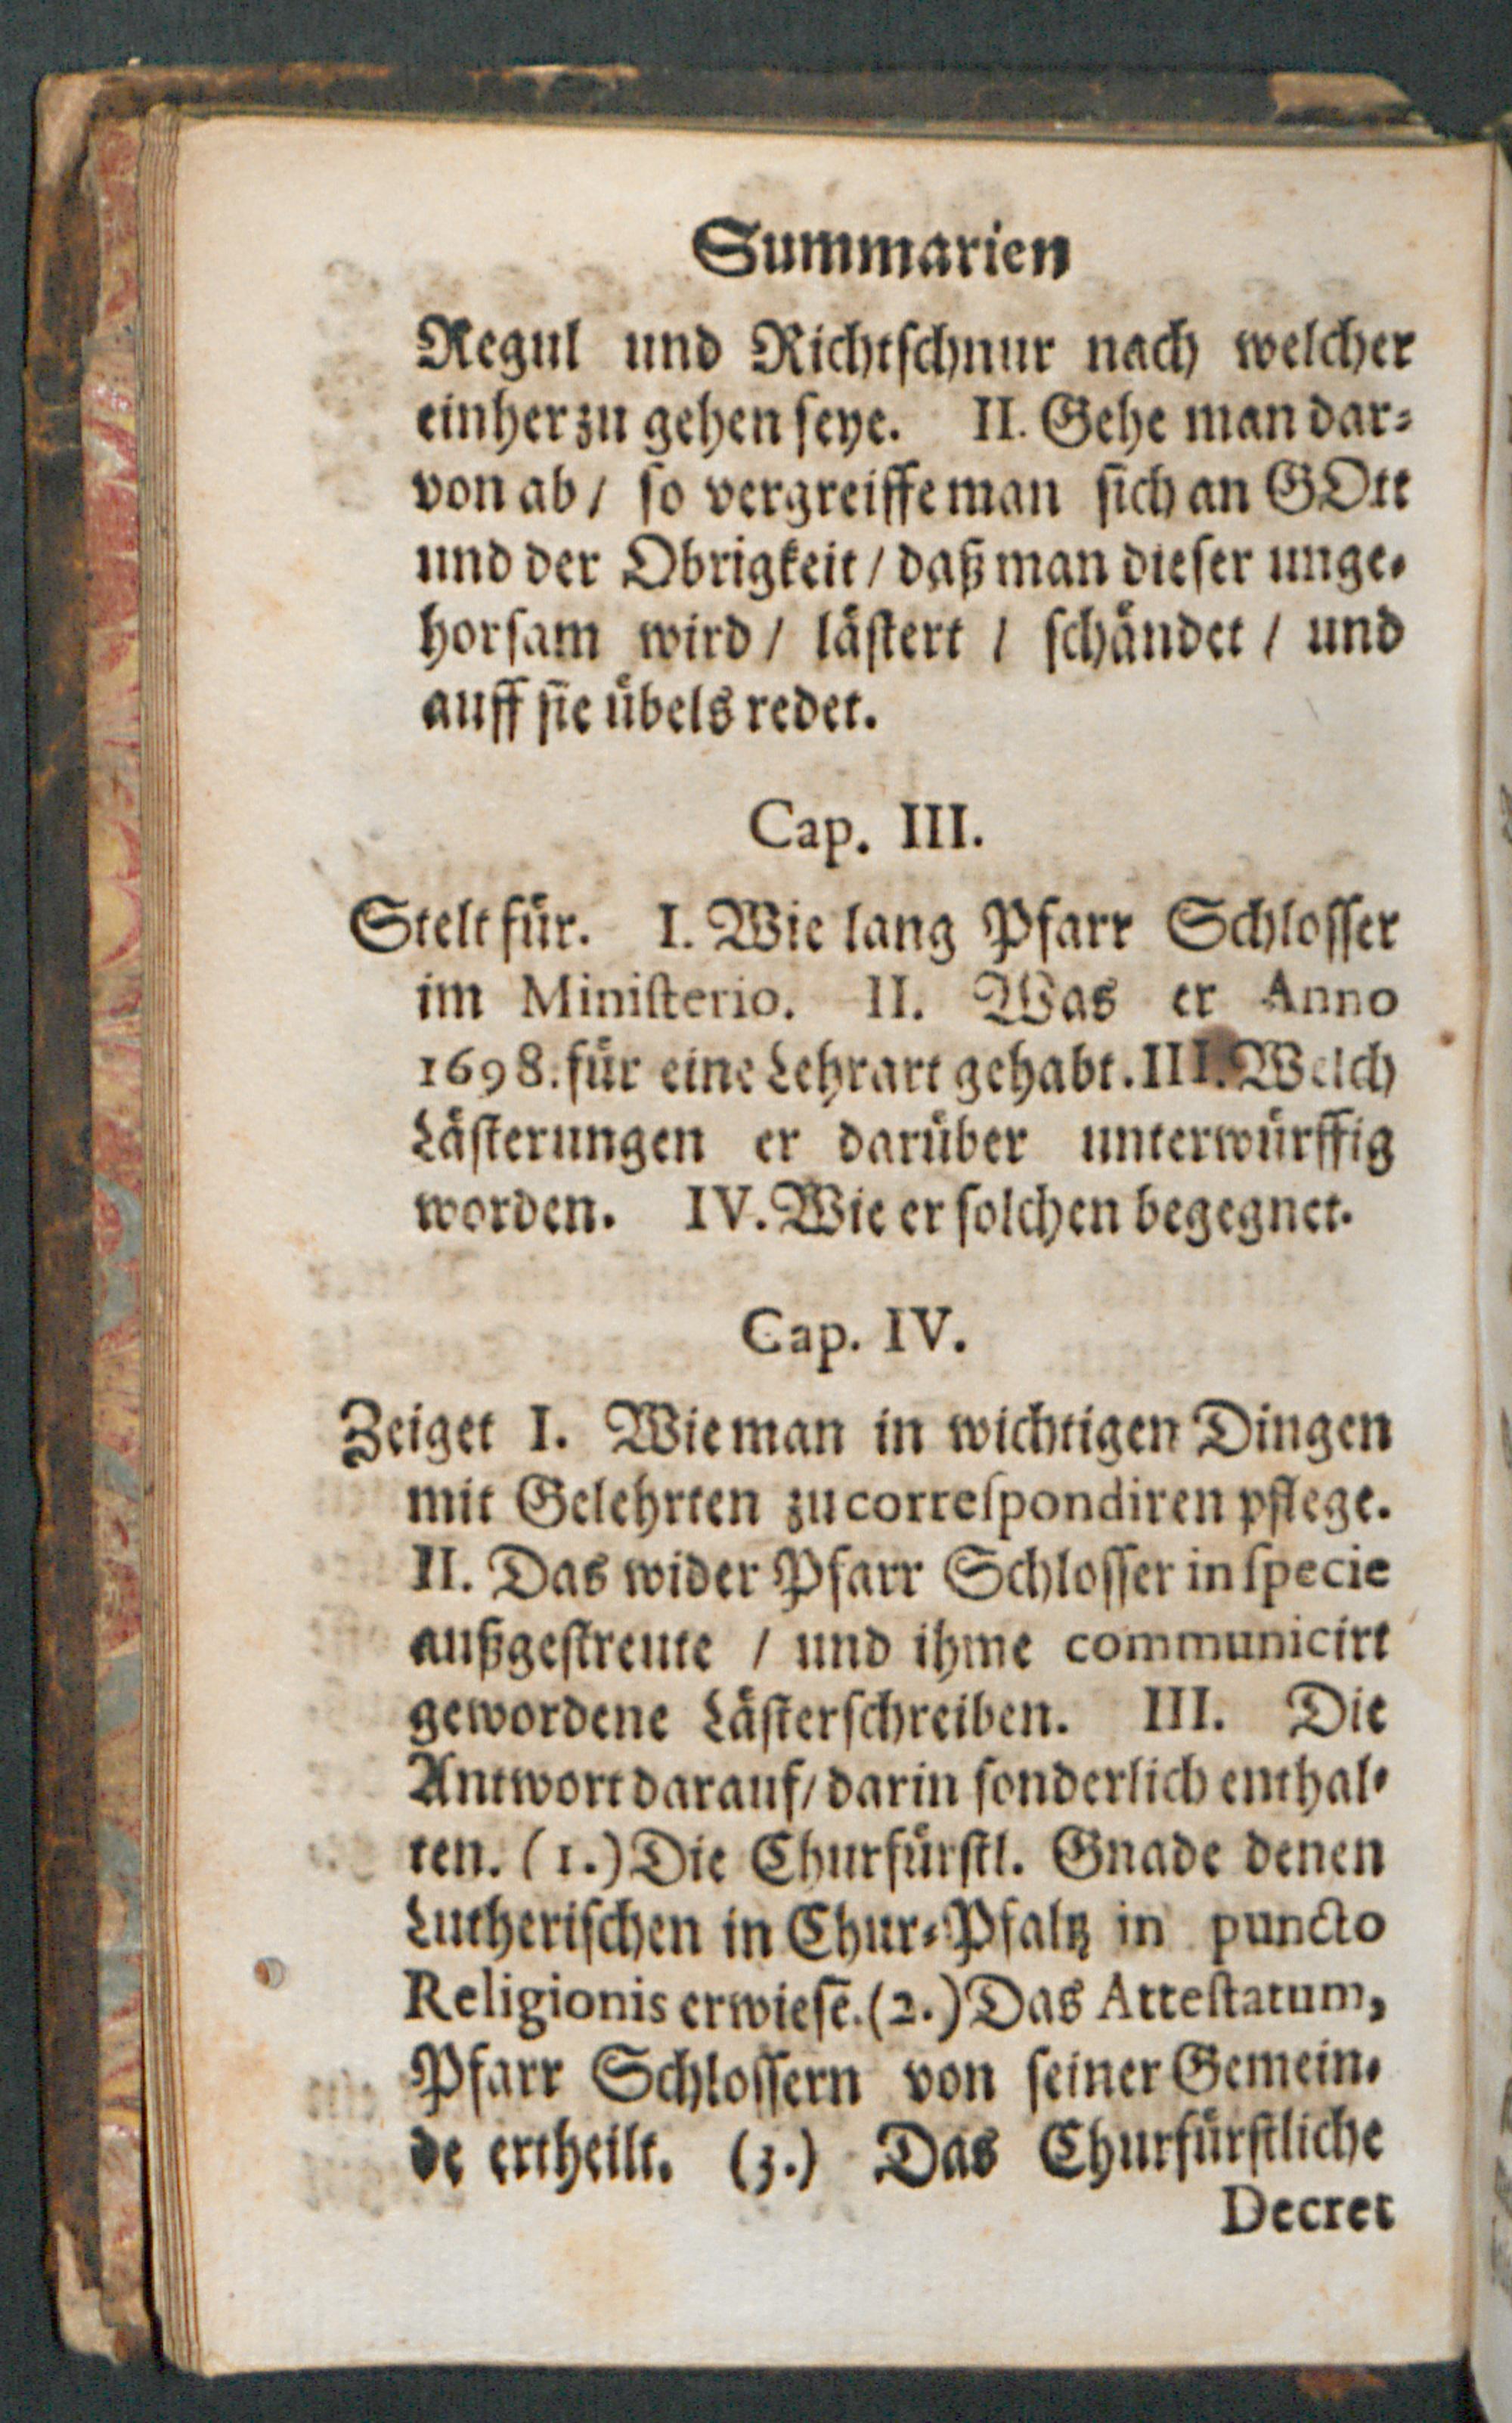 Summarien
Regul und Richtschnur nach welcher
einher zu gehen seye. II. Gehe man dar-
von ab / so vergreiffe man sich an GOtt
und der Obrigkeit / daß man dieser unge-
horsam wird / lästert / schändet / und
auff sie übels redet.
Cap. III.
Stelt für. I. Wie lang Pfarr Schlosser
im Ministerio. II. Was er Anno
1698. für eine Lehrart gehabt. III. Welch
Lästerungen er darüber unterwürffig
worden. IV. Wie er solchen begegnet.
Cap. IV.
Zeiget I. Wie man in wichtigen Dingen
mit Gelehrten zu correspondiren pflege.
II. Das wider Pfarr Schlosser in specie
außgestreute / und ihme communicirt
gewordene Lästerschreiben. III. Die
Antwort darauf / darin sonderlich enthal-
ten. (1.) Die Churfürstl. Gnade denen
Lutherischen in Chur-Pfaltz in puncto
Religionis erwiesē. (2.) Das Attestatum,
Pfarr Schlossern von seiner Gemein-
de ertheilt. (3.) Das Churfürstliche
Decret